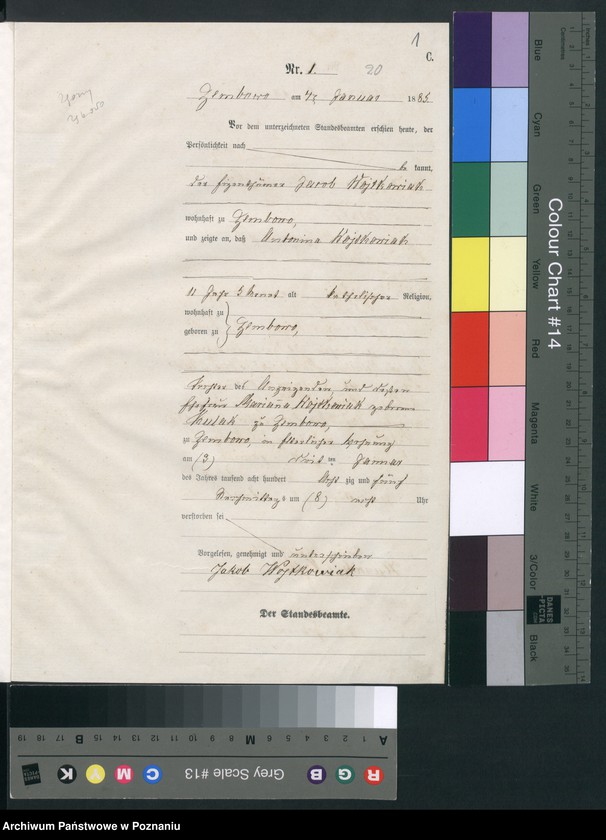 1
C.
Nr. 1. 20
Zemboro am 4ten Januar 1885
Vor dem unterzeichneten Standesbeamten erschien heute, der
Persönlichkeit nach
be kannt,
der Eigenthümer Jacob Wojtkowiak
wohnhaft zu Zemboro,
und zeigte an, daß Antonina Wojtkowiak
11 Jahr 3 Monat alt katholischer Religion,
wohnhaft zu
geboren zu Zemboro,
Tochter des Anzeigenden und dessen
Ehefrau Marianna Wojtkowiak geborene
zu Zemboro,
zu Zemboro, in elterlicher Wohnung
am (3) drei ten Januar
des Jahres tausend acht hundert acht zig und fünf
Nachmittags um (8) acht Uhr
verstorben sei
Vorgelesen, genehmigt und unterschrieben
Jakob Wojtkowiak
Der Standesbeamte.
Colour Chart #14
Blue
Cyan
Green
Yellow
Red
Magenta
White
3/Color
Black
Inches
Centimetres
DANES
-PICTA
.COM
Grey Scale #13
R G B C M Y K
A 1 2 3 4 5 6 M 8 9 10 11 12 13 14 15 B 17 18 19
Archiwum Państwowe w Poznaniu